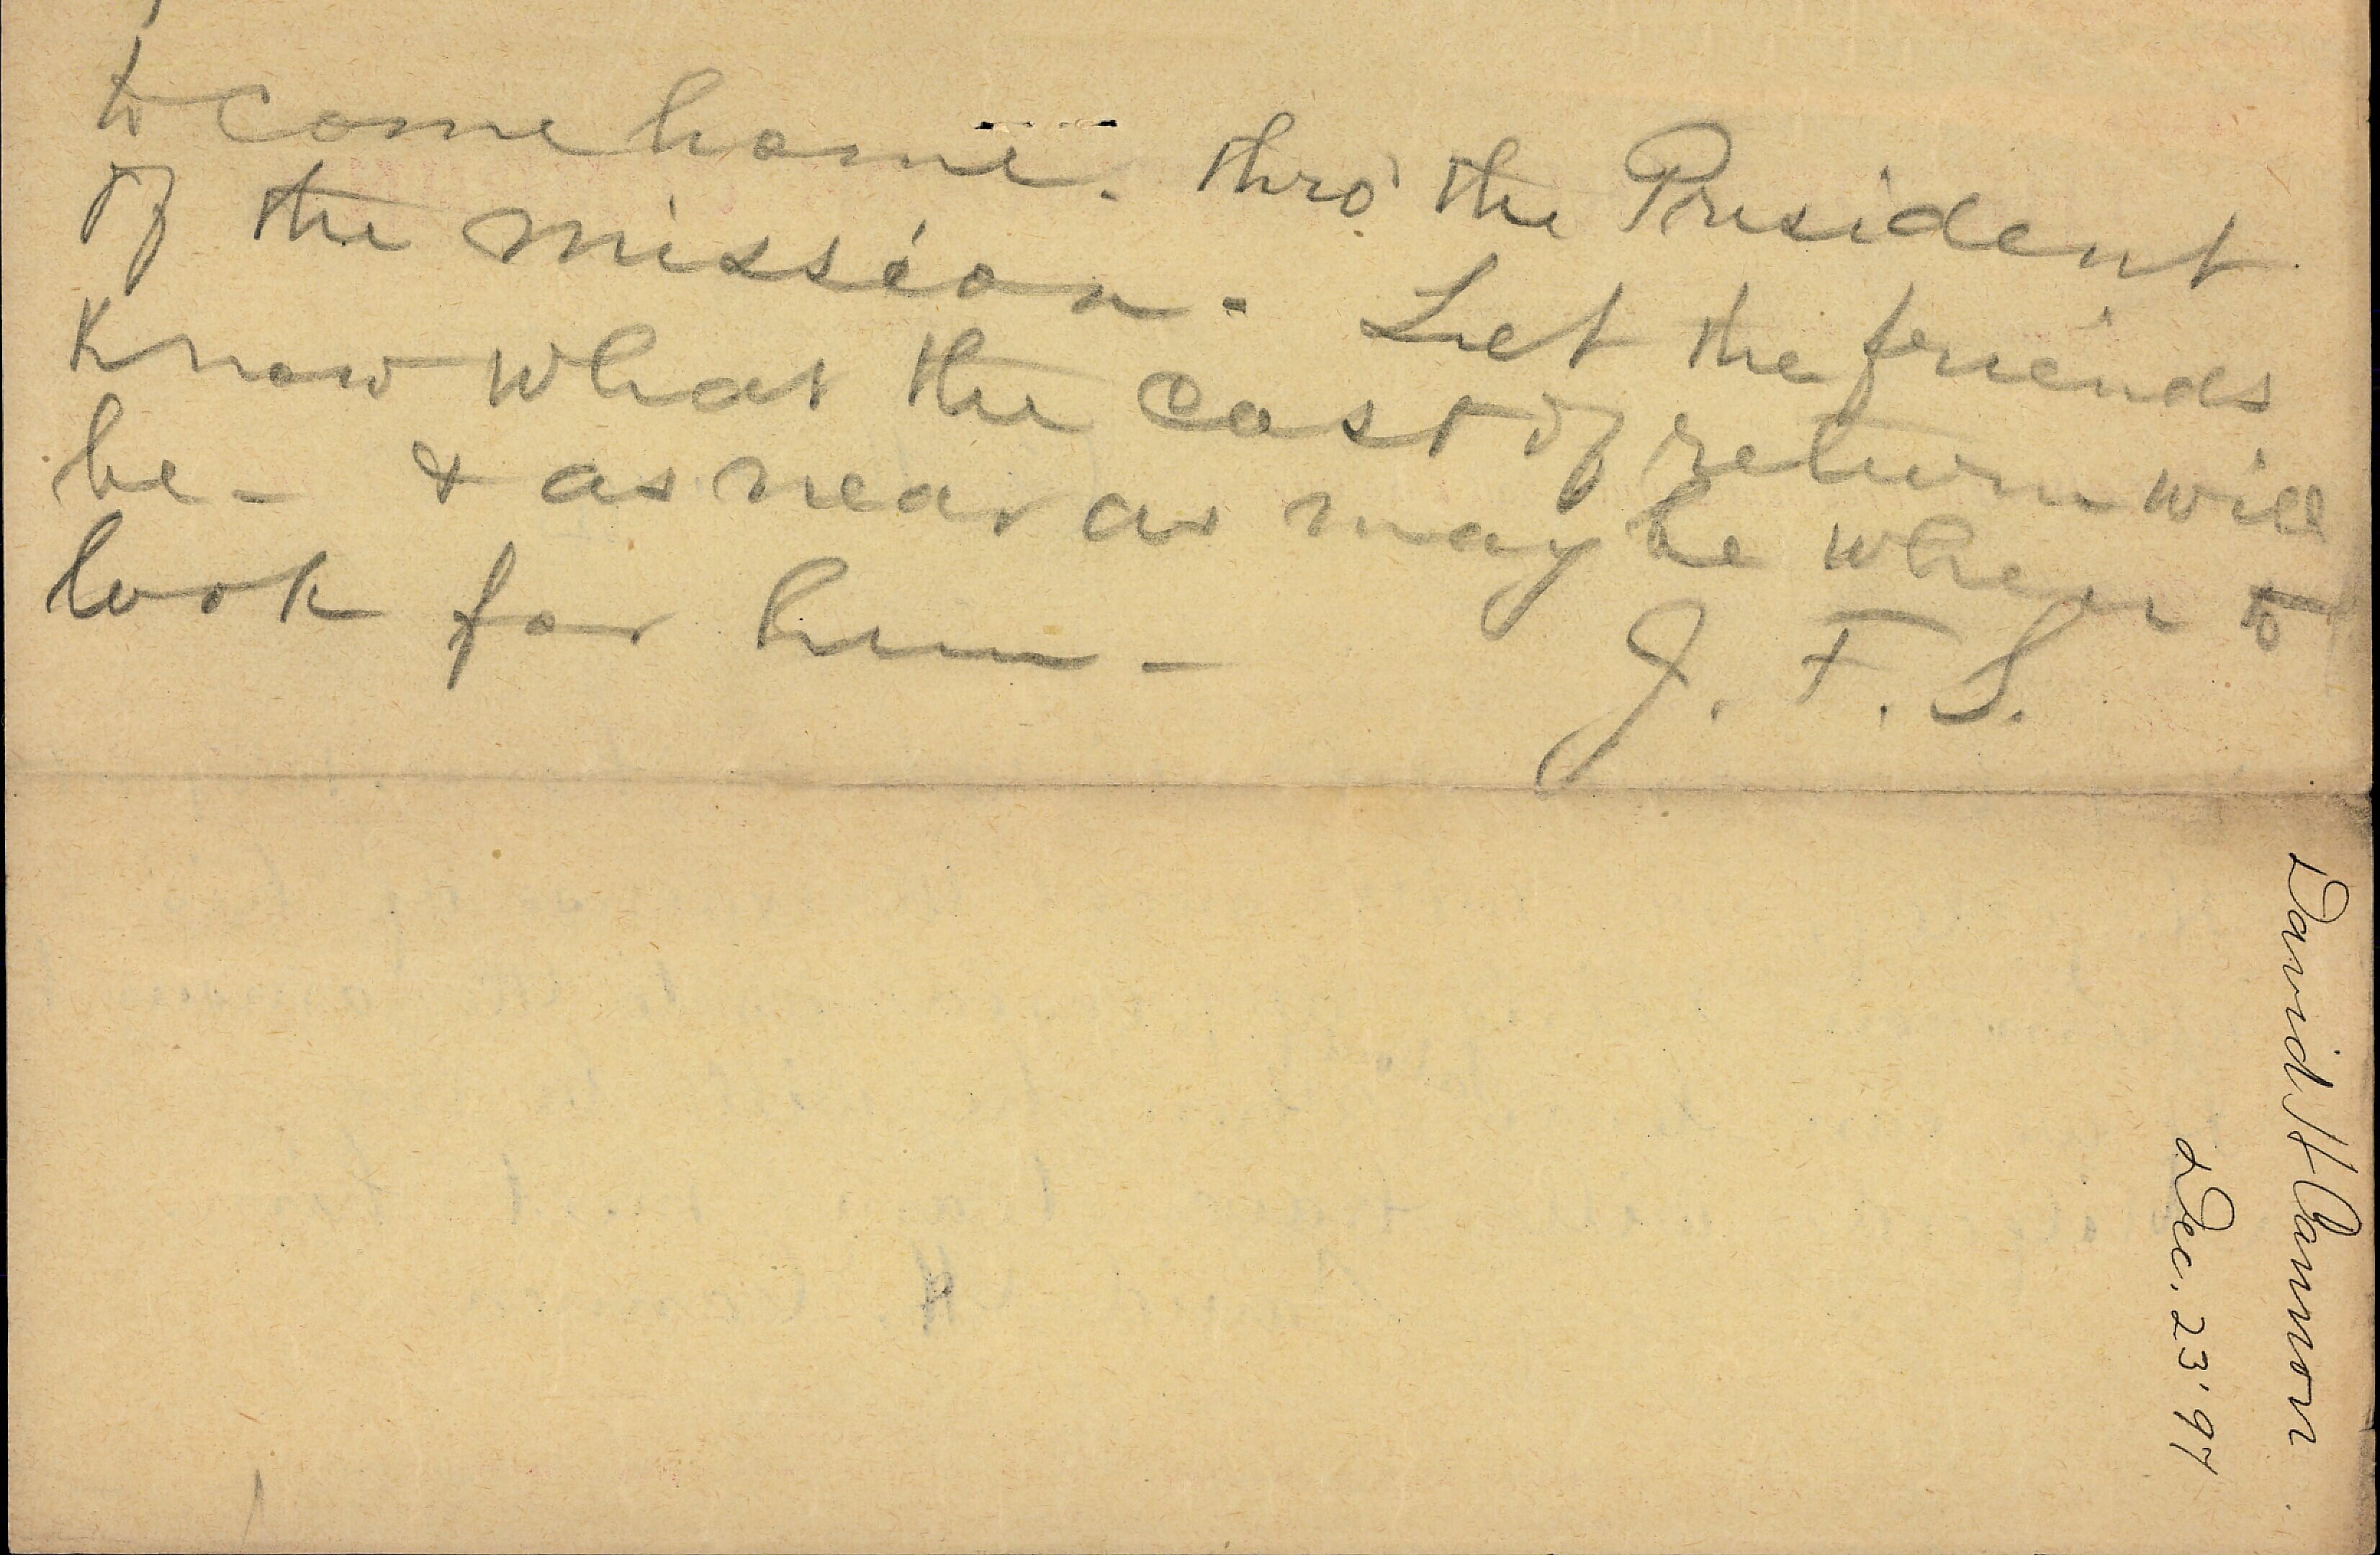 to come home. thro' the President
of the mission. Let the friends
know what the cost of return will
be - & as near as may be when to
look for him -
J. F. S.
David H Cannon
Dec. 23 '97